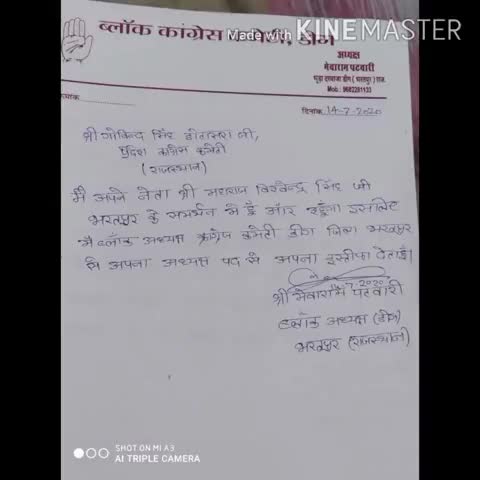 Made with KINEMASTER
ब्लॉक कांग्रेस कमेटी, डीग
अध्यक्ष
मेवाराम पटवारी
भूड़ा दरवाजा डीग (भरतपुर) राज.
Mob.: 9682281133
दिनांक 14-7-2020
श्री गोविन्द सिंह डोटासरा जी,
प्रदेश कांग्रेस कमेटी
(राजस्थान)
मैं अपने नेता श्री महाराजा विश्वेन्द्र सिंह जी
भरतपुर के समर्थन में हूँ और रहूँगा इसलिए
मैं ब्लॉक अध्यक्ष कांग्रेस कमेटी डीग जिला भरतपुर
से अपना अध्यक्ष पद से अपना इस्तीफा देता हूँ।
7-2020
श्री मेवाराम पटवारी
ब्लॉक अध्यक्ष (डीग)
भरतपुर (राजस्थान)
SHOT ON MI A3
AI TRIPLE CAMERA